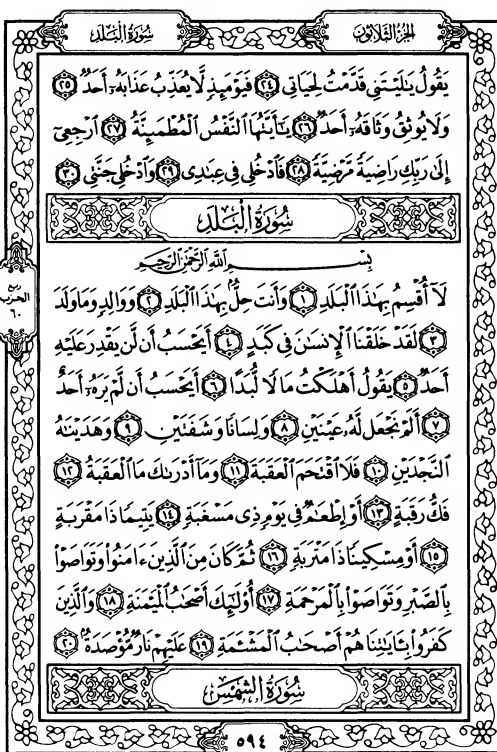 سُورَةُ الْبَلَدِ
الجُزءُ الثَّلَاثُونَ
يَقُولُ يَٰلَيْتَنِى قَدَّمْتُ لِحَيَاتِى ٢٤ فَيَوْمَئِذٍ لَّا يُعَذِّبُ عَذَابَهُۥٓ أَحَدٌ ٢٥
وَلَا يُوثِقُ وَثَاقَهُۥٓ أَحَدٌ ٢٦ يَٰٓأَيَّتُهَا ٱلنَّفْسُ ٱلْمُطْمَئِنَّةُ ٢٧ ٱرْجِعِىٓ
إِلَىٰ رَبِّكِ رَاضِيَةً مَّرْضِيَّةً ٢٨ فَٱدْخُلِى فِى عِبَٰدِى ٢٩ وَٱدْخُلِى جَنَّتِى ٣٠
سُورَةُ الْبَلَدِ
بِسْمِ ٱللَّهِ ٱلرَّحْمَٰنِ ٱلرَّحِيمِ
لَآ أُقْسِمُ بِهَٰذَا ٱلْبَلَدِ ١ وَأَنتَ حِلٌّۢ بِهَٰذَا ٱلْبَلَدِ ٢ وَوَالِدٍ وَمَا وَلَدَ
٣ لَقَدْ خَلَقْنَا ٱلْإِنسَٰنَ فِى كَبَدٍ ٤ أَيَحْسَبُ أَن لَّن يَقْدِرَ عَلَيْهِ
أَحَدٌ ٥ يَقُولُ أَهْلَكْتُ مَالًا لُّبَدًا ٦ أَيَحْسَبُ أَن لَّمْ يَرَهُۥٓ أَحَدٌ
٧ أَلَمْ نَجْعَل لَّهُۥ عَيْنَيْنِ ٨ وَلِسَانًا وَشَفَتَيْنِ ٩ وَهَدَيْنَٰهُ
ٱلنَّجْدَيْنِ ١٠ فَلَا ٱقْتَحَمَ ٱلْعَقَبَةَ ١١ وَمَآ أَدْرَىٰكَ مَا ٱلْعَقَبَةُ ١٢
فَكُّ رَقَبَةٍ ١٣ أَوْ إِطْعَٰمٌ فِى يَوْمٍ ذِى مَسْغَبَةٍ ١٤ يَتِيمًا ذَا مَقْرَبَةٍ
١٥ أَوْ مِسْكِينًا ذَا مَتْرَبَةٍ ١٦ ثُمَّ كَانَ مِنَ ٱلَّذِينَ ءَامَنُوا۟ وَتَوَاصَوْا۟
بِٱلصَّبْرِ وَتَوَاصَوْا۟ بِٱلْمَرْحَمَةِ ١٧ أُو۟لَٰٓئِكَ أَصْحَٰبُ ٱلْمَيْمَنَةِ ١٨ وَٱلَّذِينَ
كَفَرُوا۟ بِـَٔايَٰتِنَا هُمْ أَصْحَٰبُ ٱلْمَشْـَٔمَةِ ١٩ عَلَيْهِمْ نَارٌ مُّؤْصَدَةٌۢ ٢٠
سُورَةُ الشَّمْسِ
ربع
الحزب
٦٠
٥٩٤